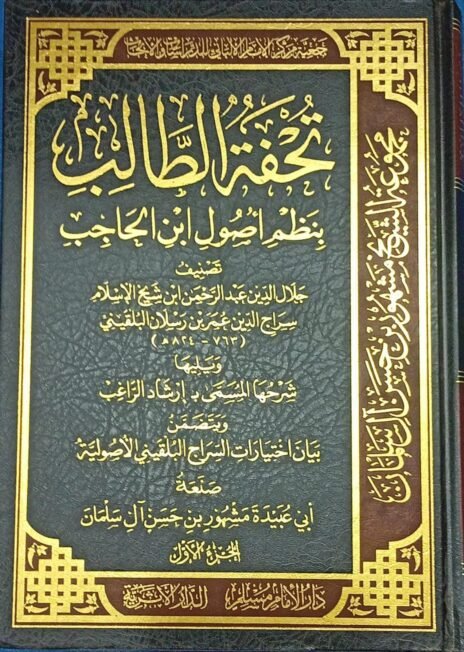 جمعية مركز الإمام الألباني للدراسات والأبحاث
تُحْفَةُ الطَّالِبِ
بِنَظْمِ أُصُولِ ابْنِ الحَاجِبِ
تَصْنِيفُ
جلال الدين عبد الرحمن ابن شيخ الإسلام
سراج الدين عمر بن رسلان البلقيني
(٧٦٣ - ٨٢٤ هـ)
وَيَلِيهَا
شرحها المسمى بـ إرشاد الراغب
وَيَتَضَمَّنُ
بيان اختيارات السراج البلقيني الأصولية
صَنْعَةُ
أبي عبيدة مشهور بن حسن آل سلمان
الجزء الأول
دار الإمام مسلم
الدار الأثرية
مجموعة الشيخ مشهور بن حسن آل سلمان